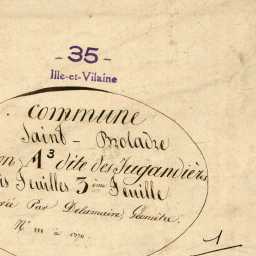 - 35 -
Ille-et-Vilaine
Commune
Saint - Broladre
on A 3 dite des Jugandières
is Feuilles 3 ème Feuille
Par Delamaire, Géomètre.
1